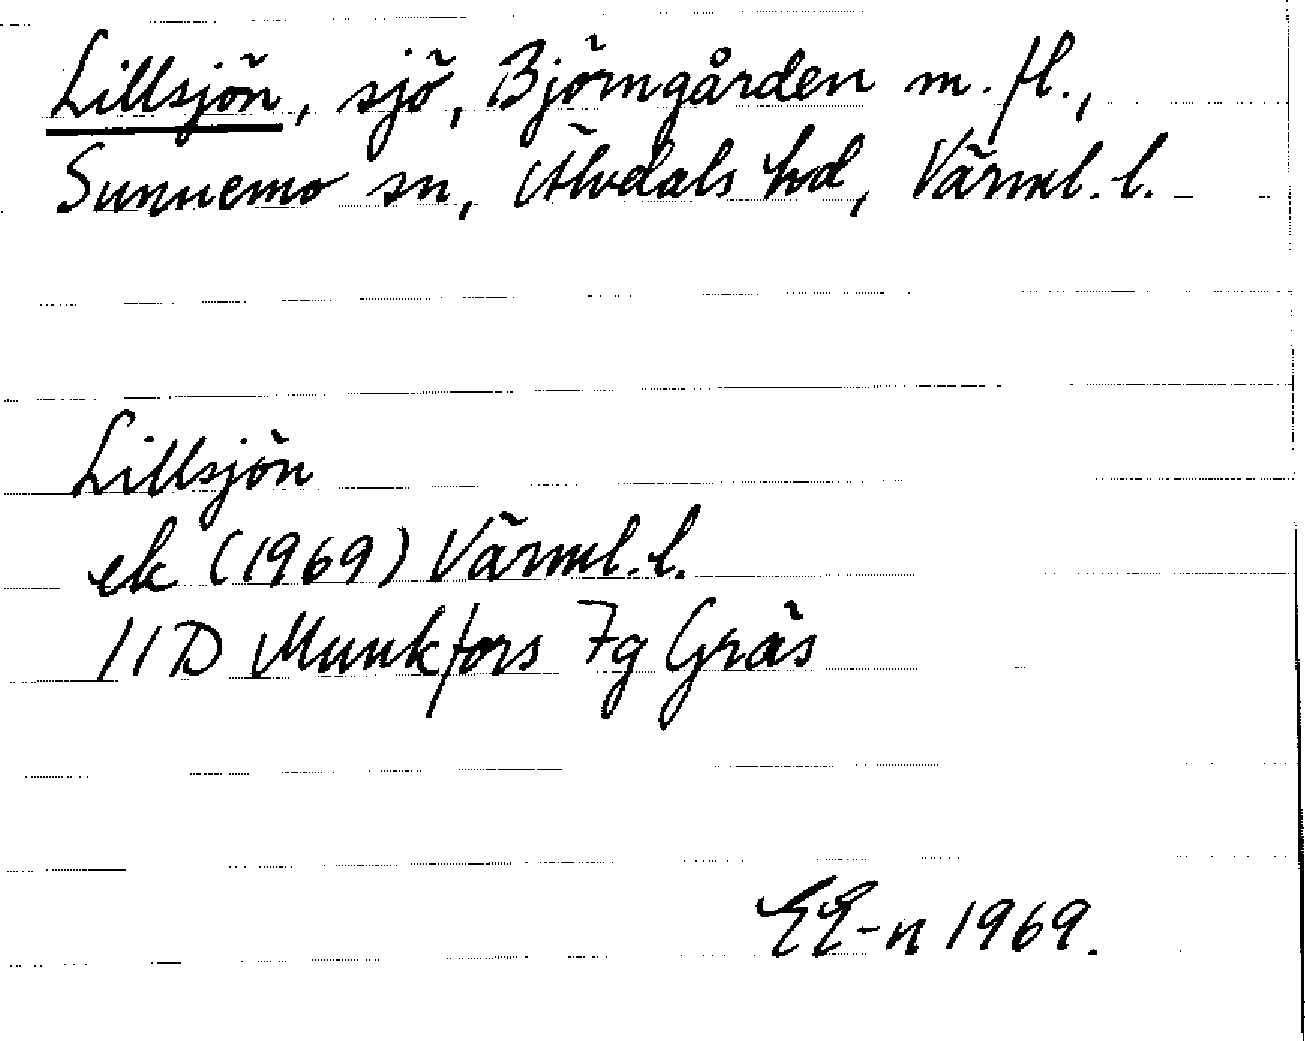 Lillsjön, sjö, Björngården m. fl.,
Sunnemo sn, Älvdals hd, Värml. l.
Lillsjön
ek (1969) Värml. l.
11D Munkfors 7g Gräs
EE-n 1969.